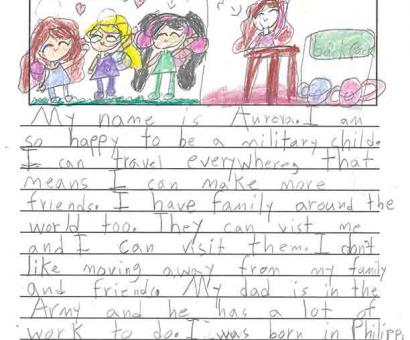 backpack
My name is Aurora. I am
so happy to be a military child.
I can travel everywhere, that
means I can make more
friends. I have family around the
world too. They can vist me
and I can visit them. I don't
like moving away from my family
and friends. My dad is in the
Army and he has a lot of
work to do. I was born in Philipp